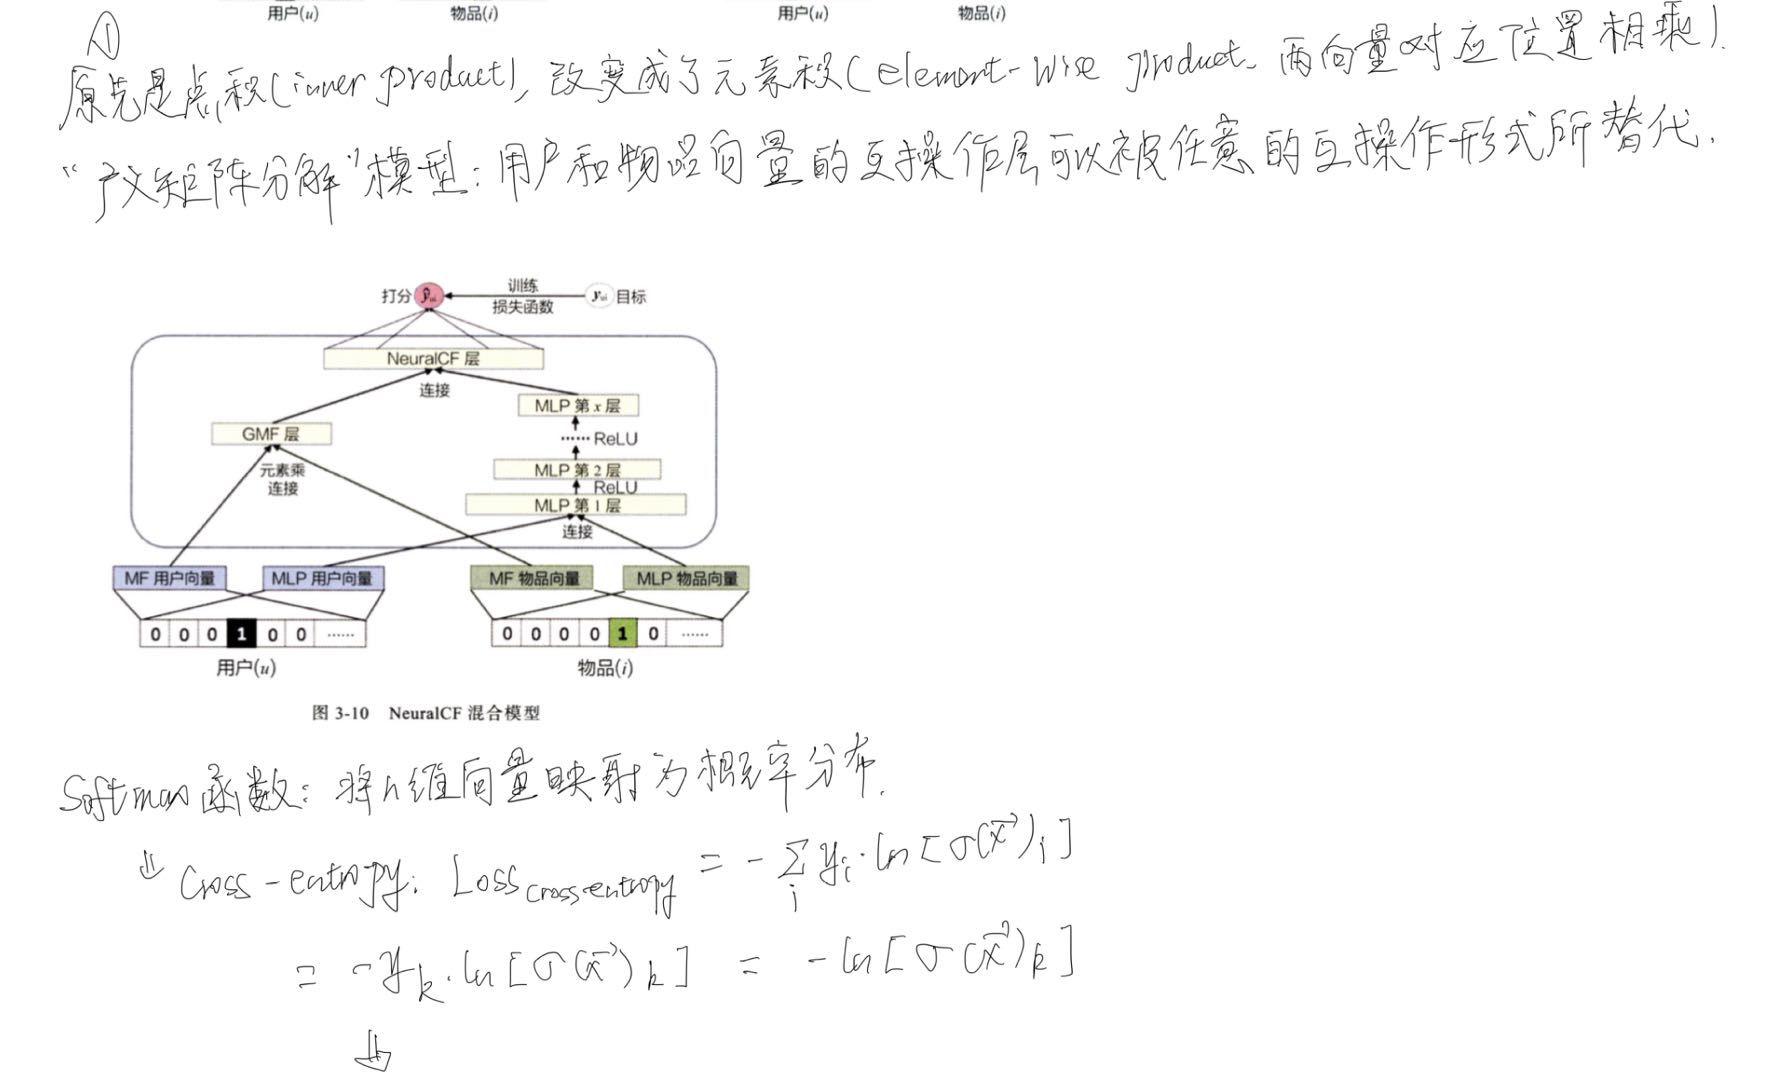 用户(u) 物品(i) 用户(u) 物品(i)
①
原先是点积(inner product), 改变成了元素积(element-wise product, 两向量对应位置相乘).
“广义矩阵分解”模型: 用户和物品向量的互操作层可以被任意的互操作形式所替代.
打分 ŷui 训练 yui 目标
损失函数
NeuralCF 层
连接
MLP 第 x 层
GMF 层 …… ReLU
元素乘 MLP 第 2 层
连接 ReLU
MLP 第 1 层
连接
MF 用户向量 MLP 用户向量 MF 物品向量 MLP 物品向量
0 0 0 1 0 0 …… 0 0 0 0 1 0 ……
用户(u) 物品(i)
图 3-10 NeuralCF 混合模型
Softmax 函数: 将n维向量映射为概率分布.
⇓ Cross-entropy: Loss cross entropy = - Σ_i y_i · ln[σ(x⃗)_i]
= -y_k · ln[σ(x⃗)_k] = -ln[σ(x⃗)_k]
⇓